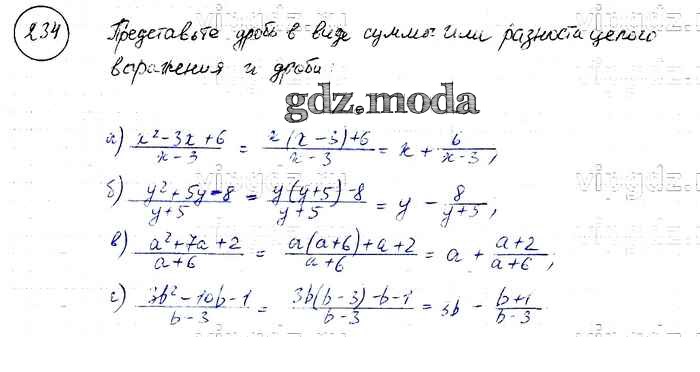 234
Представьте дробь в виде суммы или разности целого
выражения и дроби:
gdz.moda
а) (x² - 3x + 6)/(x - 3) = (x(x - 3) + 6)/(x - 3) = x + 6/(x - 3),
б) (y² + 5y - 8)/(y + 5) = (y(y + 5) - 8)/(y + 5) = y - 8/(y + 5),
в) (a² + 7a + 2)/(a + 6) = (a(a + 6) + a + 2)/(a + 6) = a + (a + 2)/(a + 6),
г) (3b² - 10b - 1)/(b - 3) = (3b(b - 3) - b - 1)/(b - 3) = 3b - (b + 1)/(b - 3)